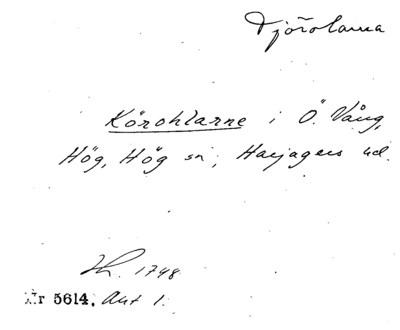 Tjörolarna
Körohlarne i Ö. Vång,
Hög, Hög sn, Harjagers hd.
Lh. 1748
Nr 5614. Akt 1.